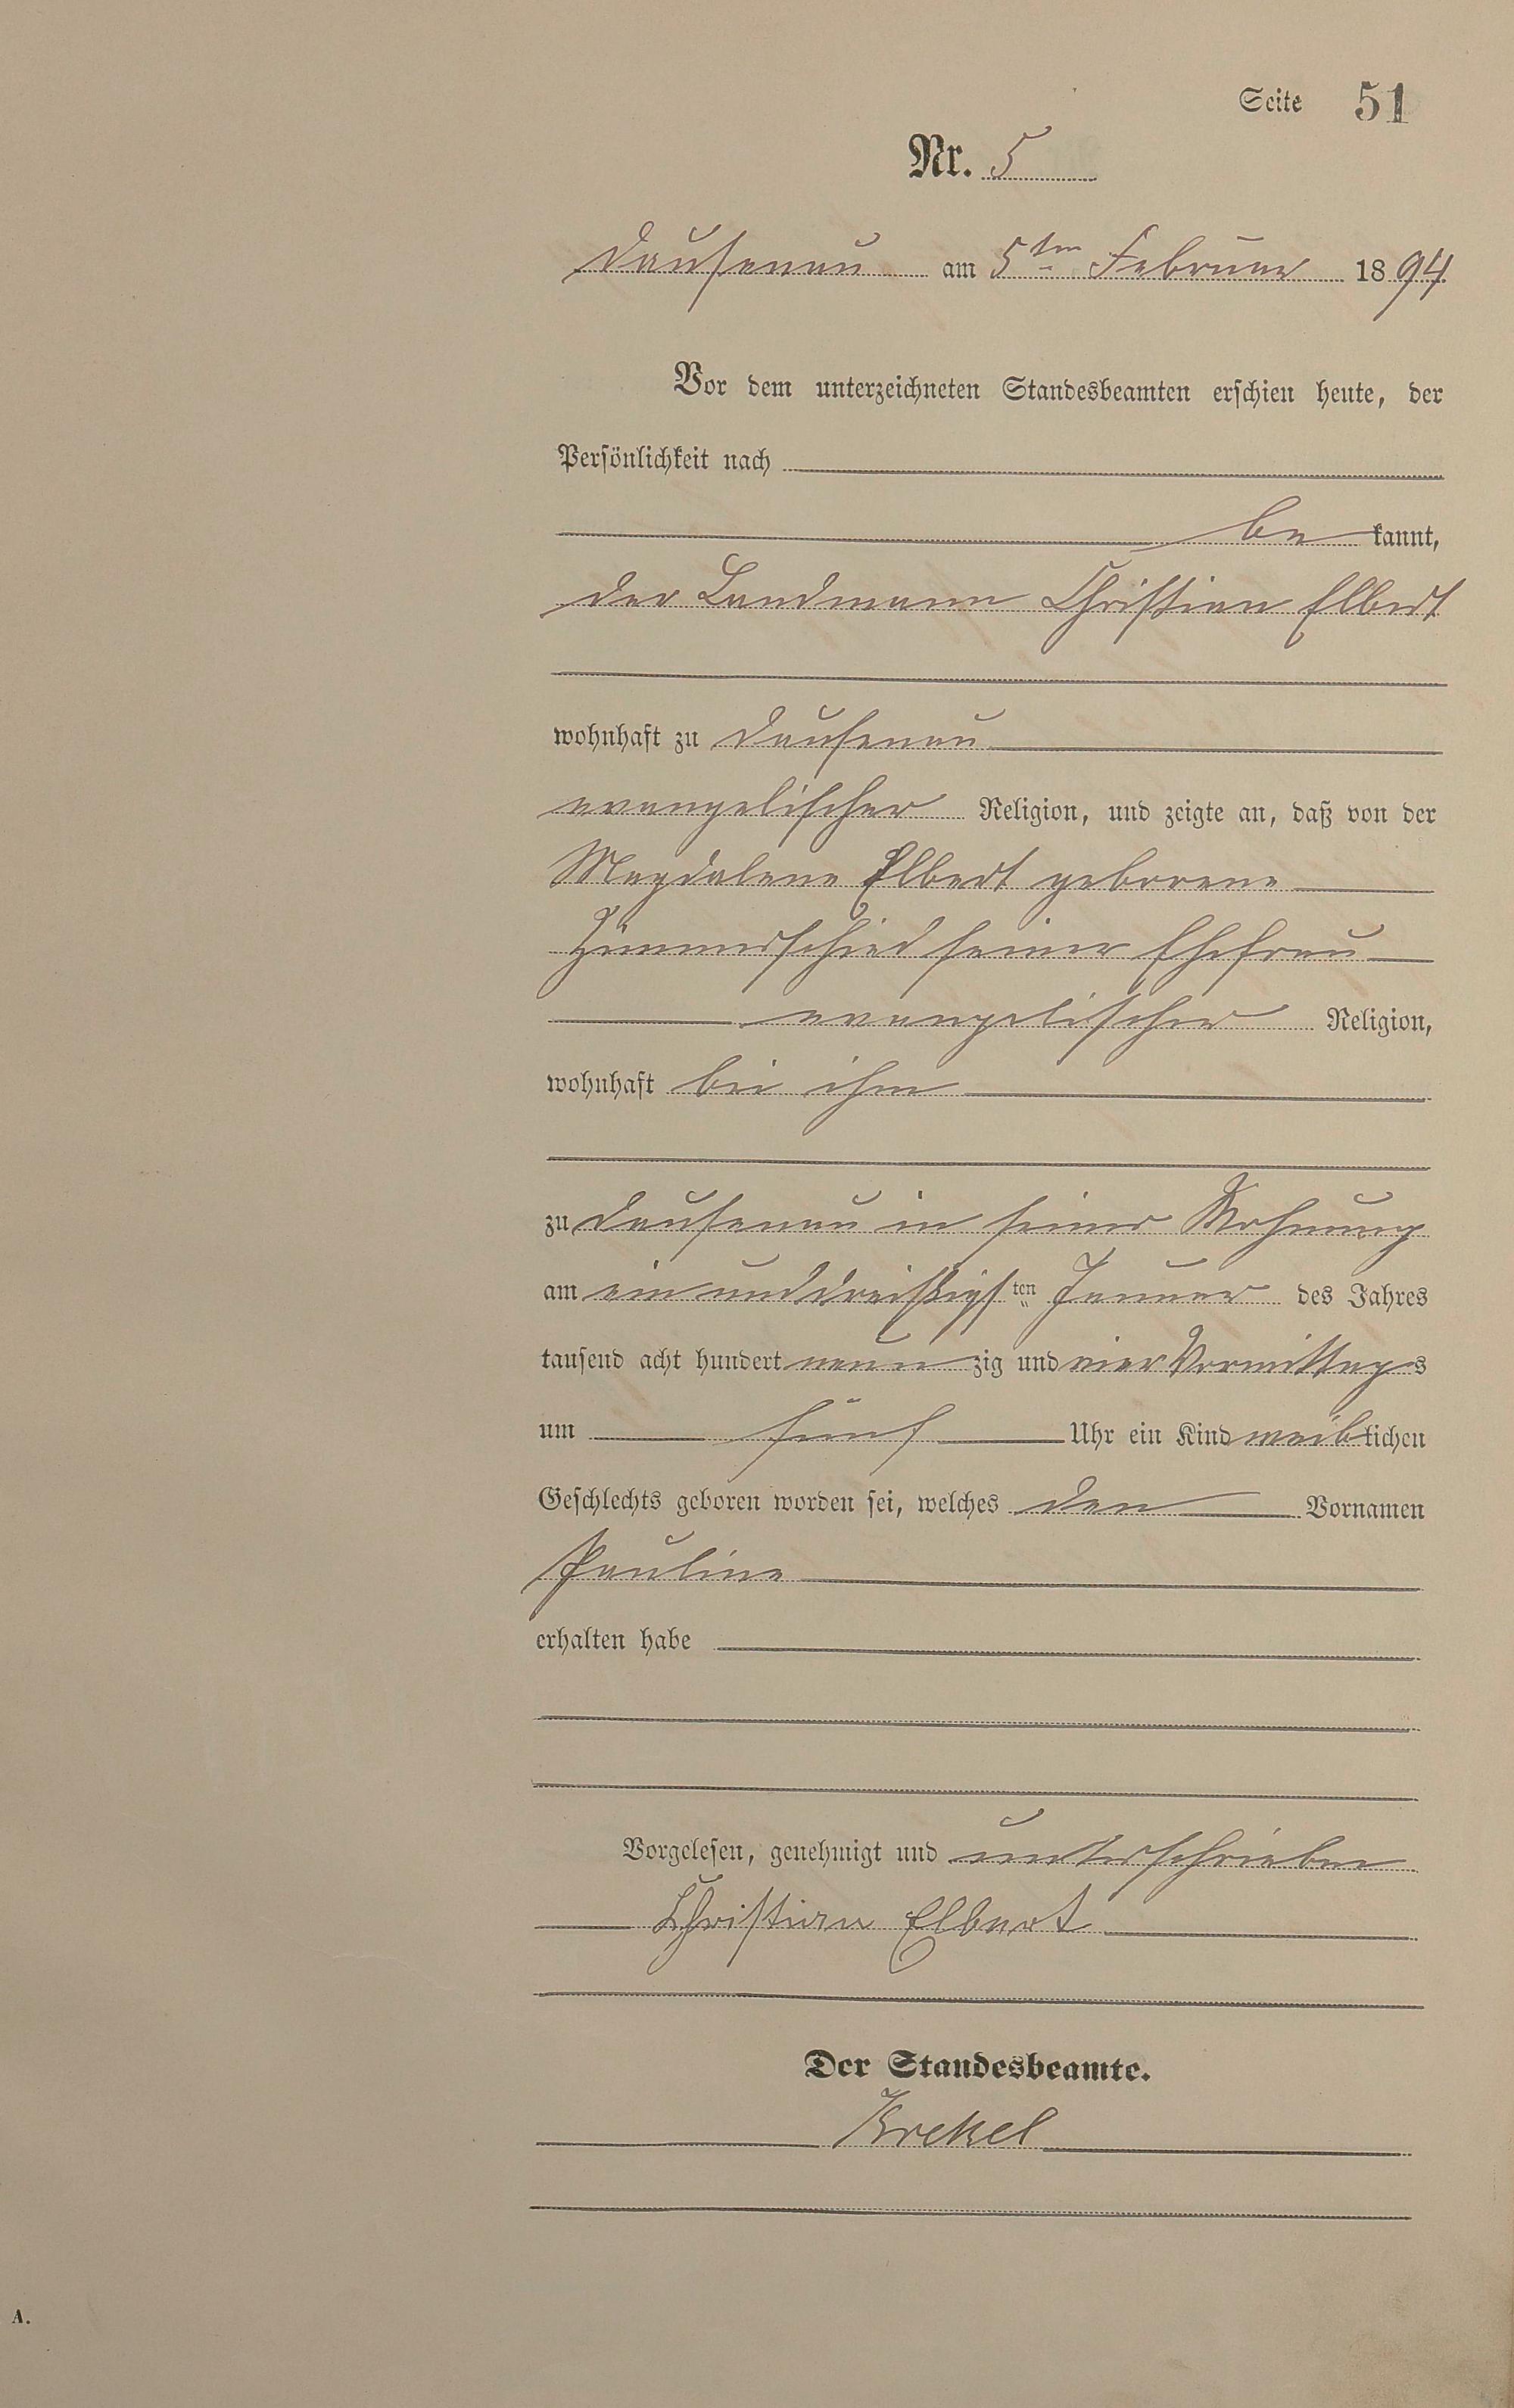 Seite 51
Nr. 5
Dausenau am 5ten Februar 1894
Vor dem unterzeichneten Standesbeamten erschien heute, der
Persönlichkeit nach
be kannt,
der Landmann Christian Elbert
wohnhaft zu Dausenau
evangelischer Religion, und zeigte an, daß von der
Magdalene Elbert geborene
Zimmerschied seiner Ehefrau
evangelischer Religion,
wohnhaft bei ihm
zu Dausenau in seiner Wohnung
am ein und dreißigsten Januar des Jahres
tausend acht hundert neunzig und vier Vormittags
um fünf Uhr ein Kind weiblichen
Geschlechts geboren worden sei, welches den Vornamen
Pauline
erhalten habe
Vorgelesen, genehmigt und unterschrieben
Christian Elbert
Der Standesbeamte.
Krekel
A.